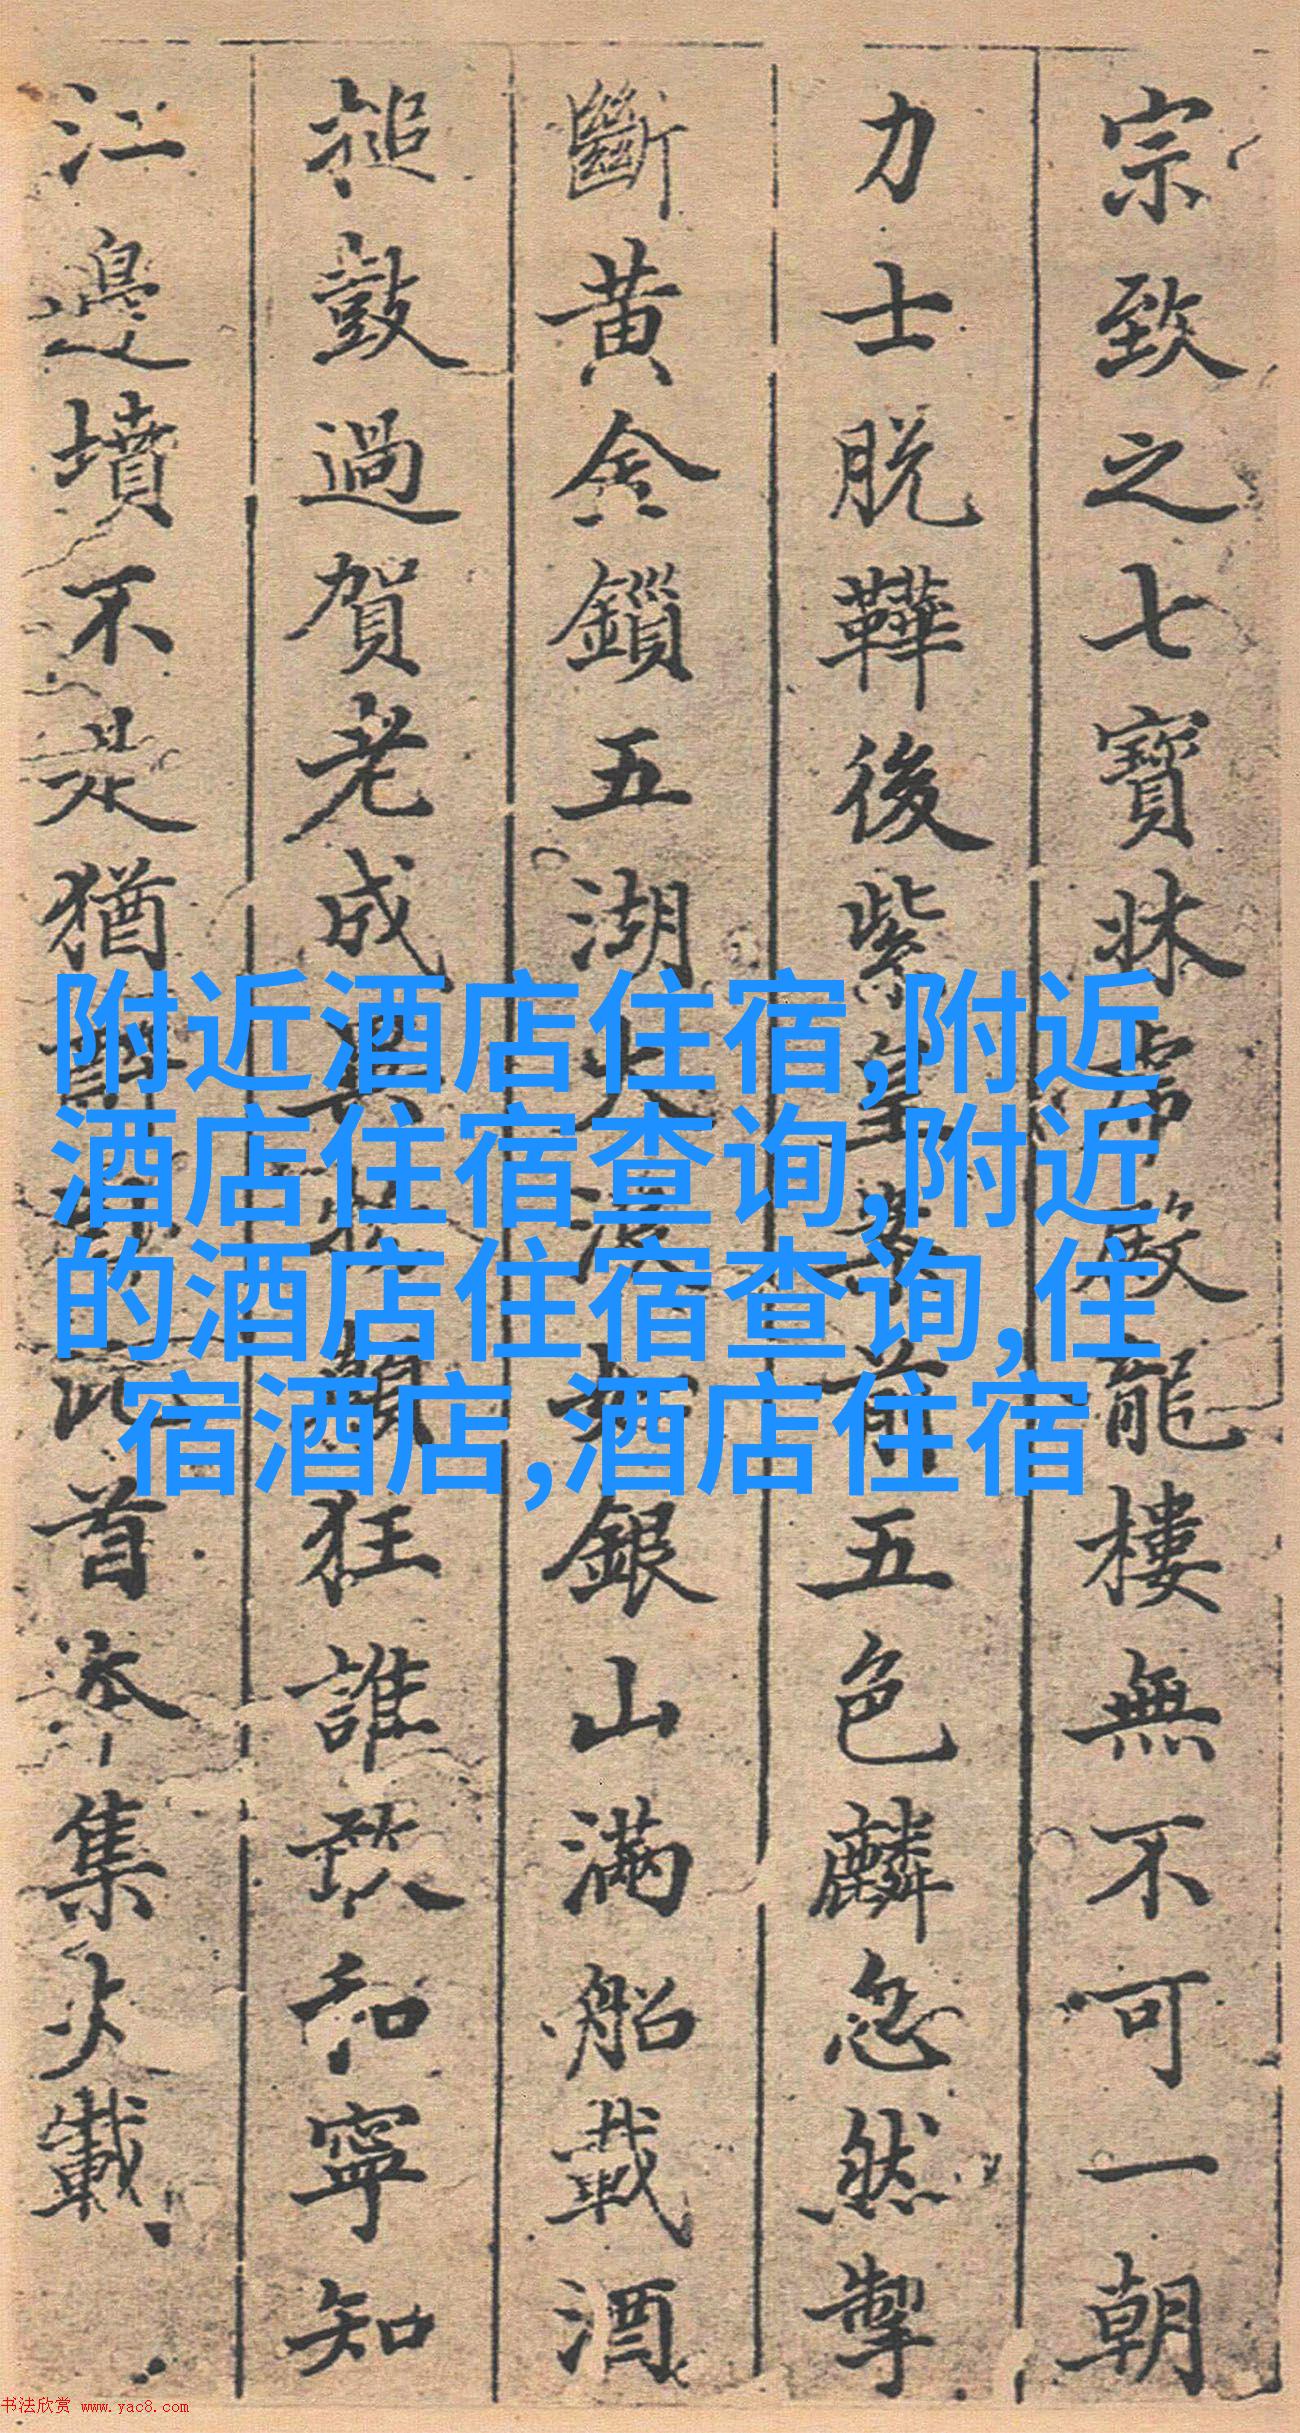 宗致之七寶牀虎殿龍樓無不可一朝
力士脱鞾後紫皇案前五色麟忽然掣
斷黄金鎖五湖大浪如銀山滿船載酒
搥鼓過賀老成異物顛狂誰敢和寧知
江邊墳不是猶醉臥此首本集不載
附近酒店住宿,附近
酒店住宿查询,附近
的酒店住宿查询,住
宿酒店,酒店住宿
书法欣赏 www.yac8.com